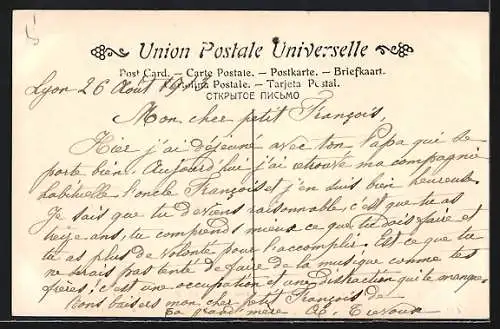 Union Postale Universelle
Post Card. — Carte Postale. — Postkarte. — Briefkaart.
Postale. — Tarjeta Postal.
ОТКРЫТОЕ ПИСЬМО
Lyon 26 Août
Mon cher petit François,
Hier j'ai déjeuné avec ton Papa qui se
porte bien. Aujourd'hui j'ai retrouvé ma compagnie
habituelle l'oncle François et j'en suis bien heureuse.
Je sais que tu deviens raisonnable, c'est que tu as
treize ans, tu comprends mieux ce que tu dois faire et
tu as plus de volonté pour l'accomplir. Est ce que tu
ne serais pas tenté de faire de la musique comme tes
frères! c'est une occupation et une distraction qui te manque.
Bons baisers mon cher petit François de
ta grand'mère